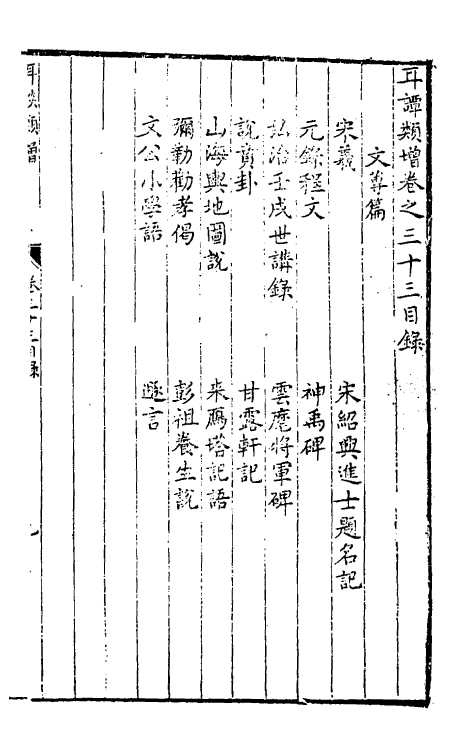 耳譚類增卷之三十三目錄
文萼篇
宋羲 宋紹興進士題名記
元錄程文 神禹碑
弘治壬戌世講錄 雲麾將軍碑
說賁卦 甘露軒記
山海輿地圖說 來鴈塔記語
彌勒勸孝偈 彭祖養生說
文公小學語 遯言
耳談類增
卷三十三目錄